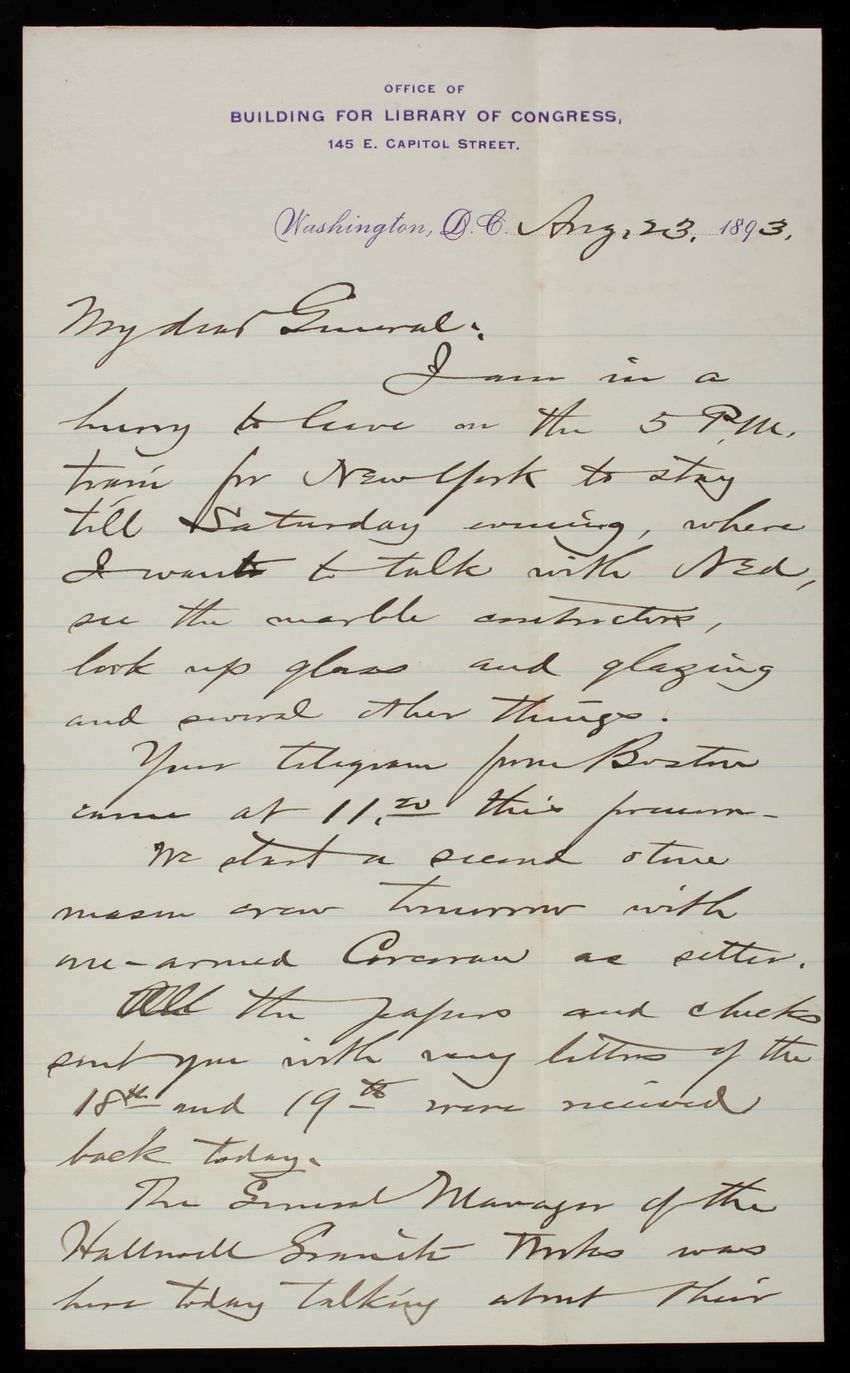 OFFICE OF
BUILDING FOR LIBRARY OF CONGRESS,
145 E. CAPITOL STREET.
Washington, D.C. Aug. 23, 1893.
My dear General:
I am in a
hurry to leave on the 5 P.M.
train for New York to stay
till Saturday evening, where
I want to talk with Ned,
see the marble contractors,
look up glass and glazing
and several other things.
Your telegram from Boston
came at 11.20 this forenoon-
We start a second stone
mason crew tomorrow with
one-armed Corcoran as setter.
All the papers and checks
sent you with my letters of the
18th and 19th were received
back today.
The General Manager of the
Hallowell Granite Works was
here today talking about their